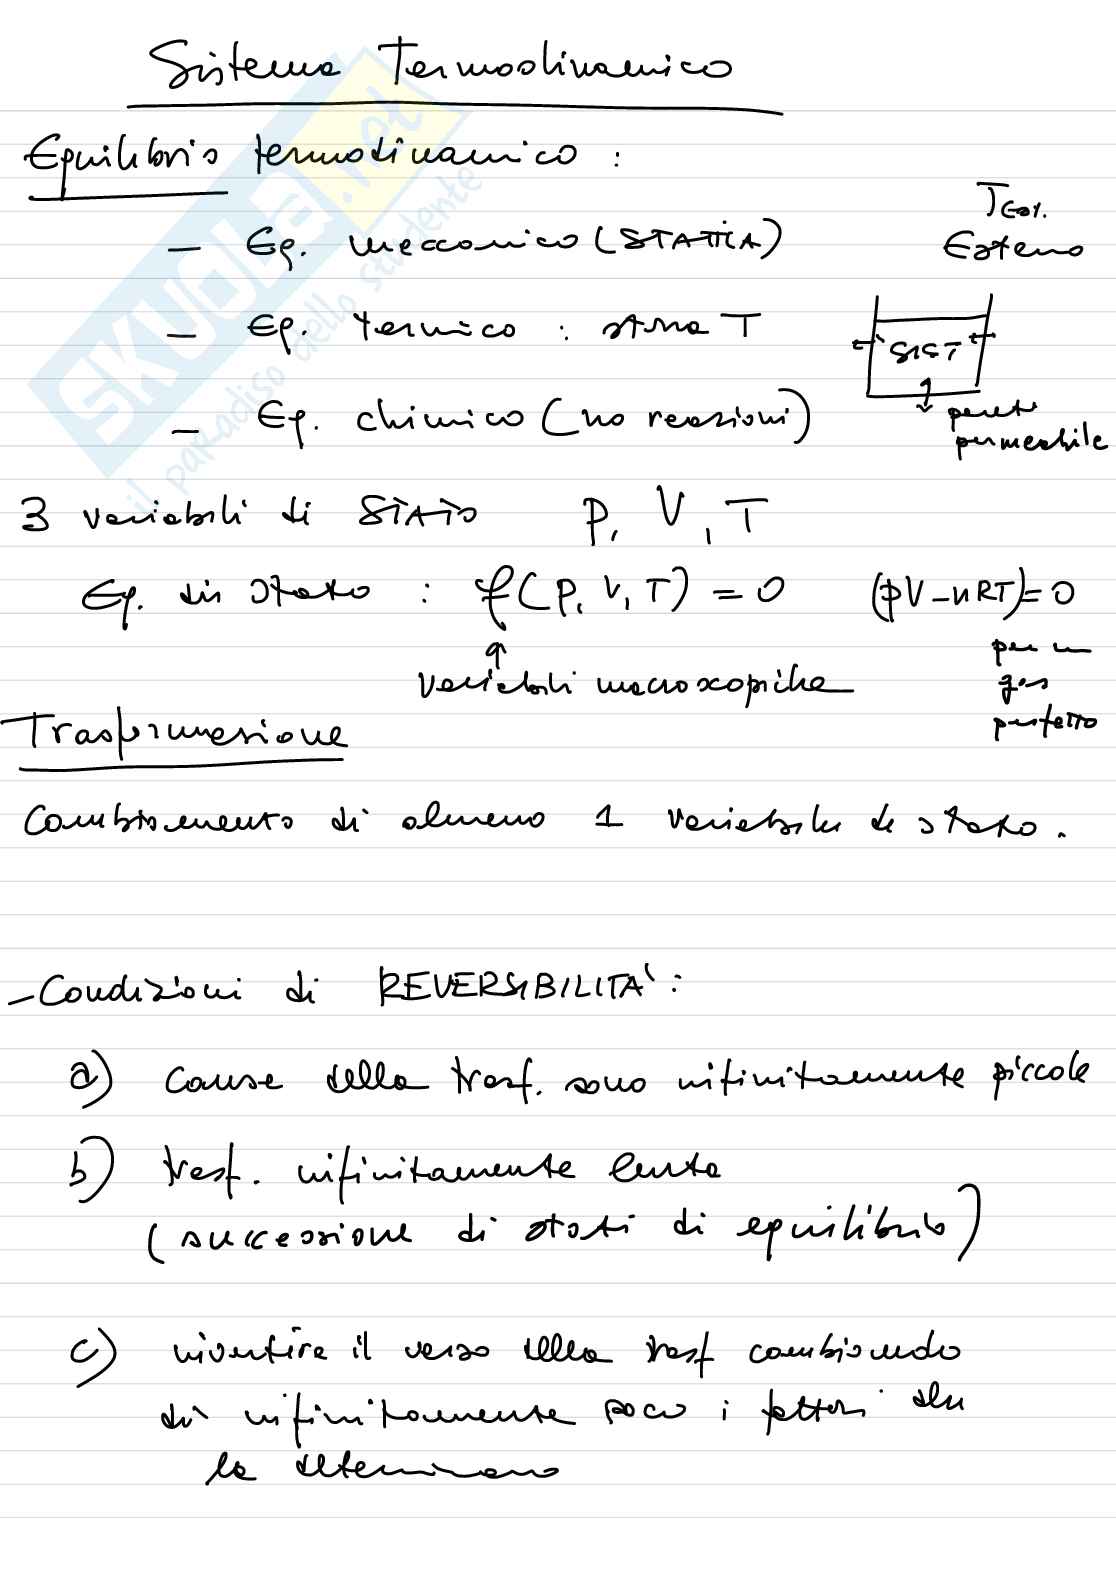 Sistema Termodinamico
Equilibrio termodinamico :
– Eq. meccanico (STATICA)
T Est.
Esterno
– Eq. termico : stessa T
SIST
– Eq. chimico (no reazioni)
parete
permeabile
3 variabili di STATO P, V, T
Eq. di stato : f(P, V, T) = 0 (pV – nRT) = 0
per un
gas
perfetto
variabili macroscopiche
Trasformazione
Cambiamento di almeno 1 variabile di stato.
– Condizioni di REVERSIBILITA' :
a) cause della trasf. sono infinitamente piccole
b) trasf. infinitamente lenta
(successione di stati di equilibrio)
c) invertire il verso della trasf cambiando
di infinitamente poco i fattori che
la determinano
SKUOLA.net
il paradiso dello studente